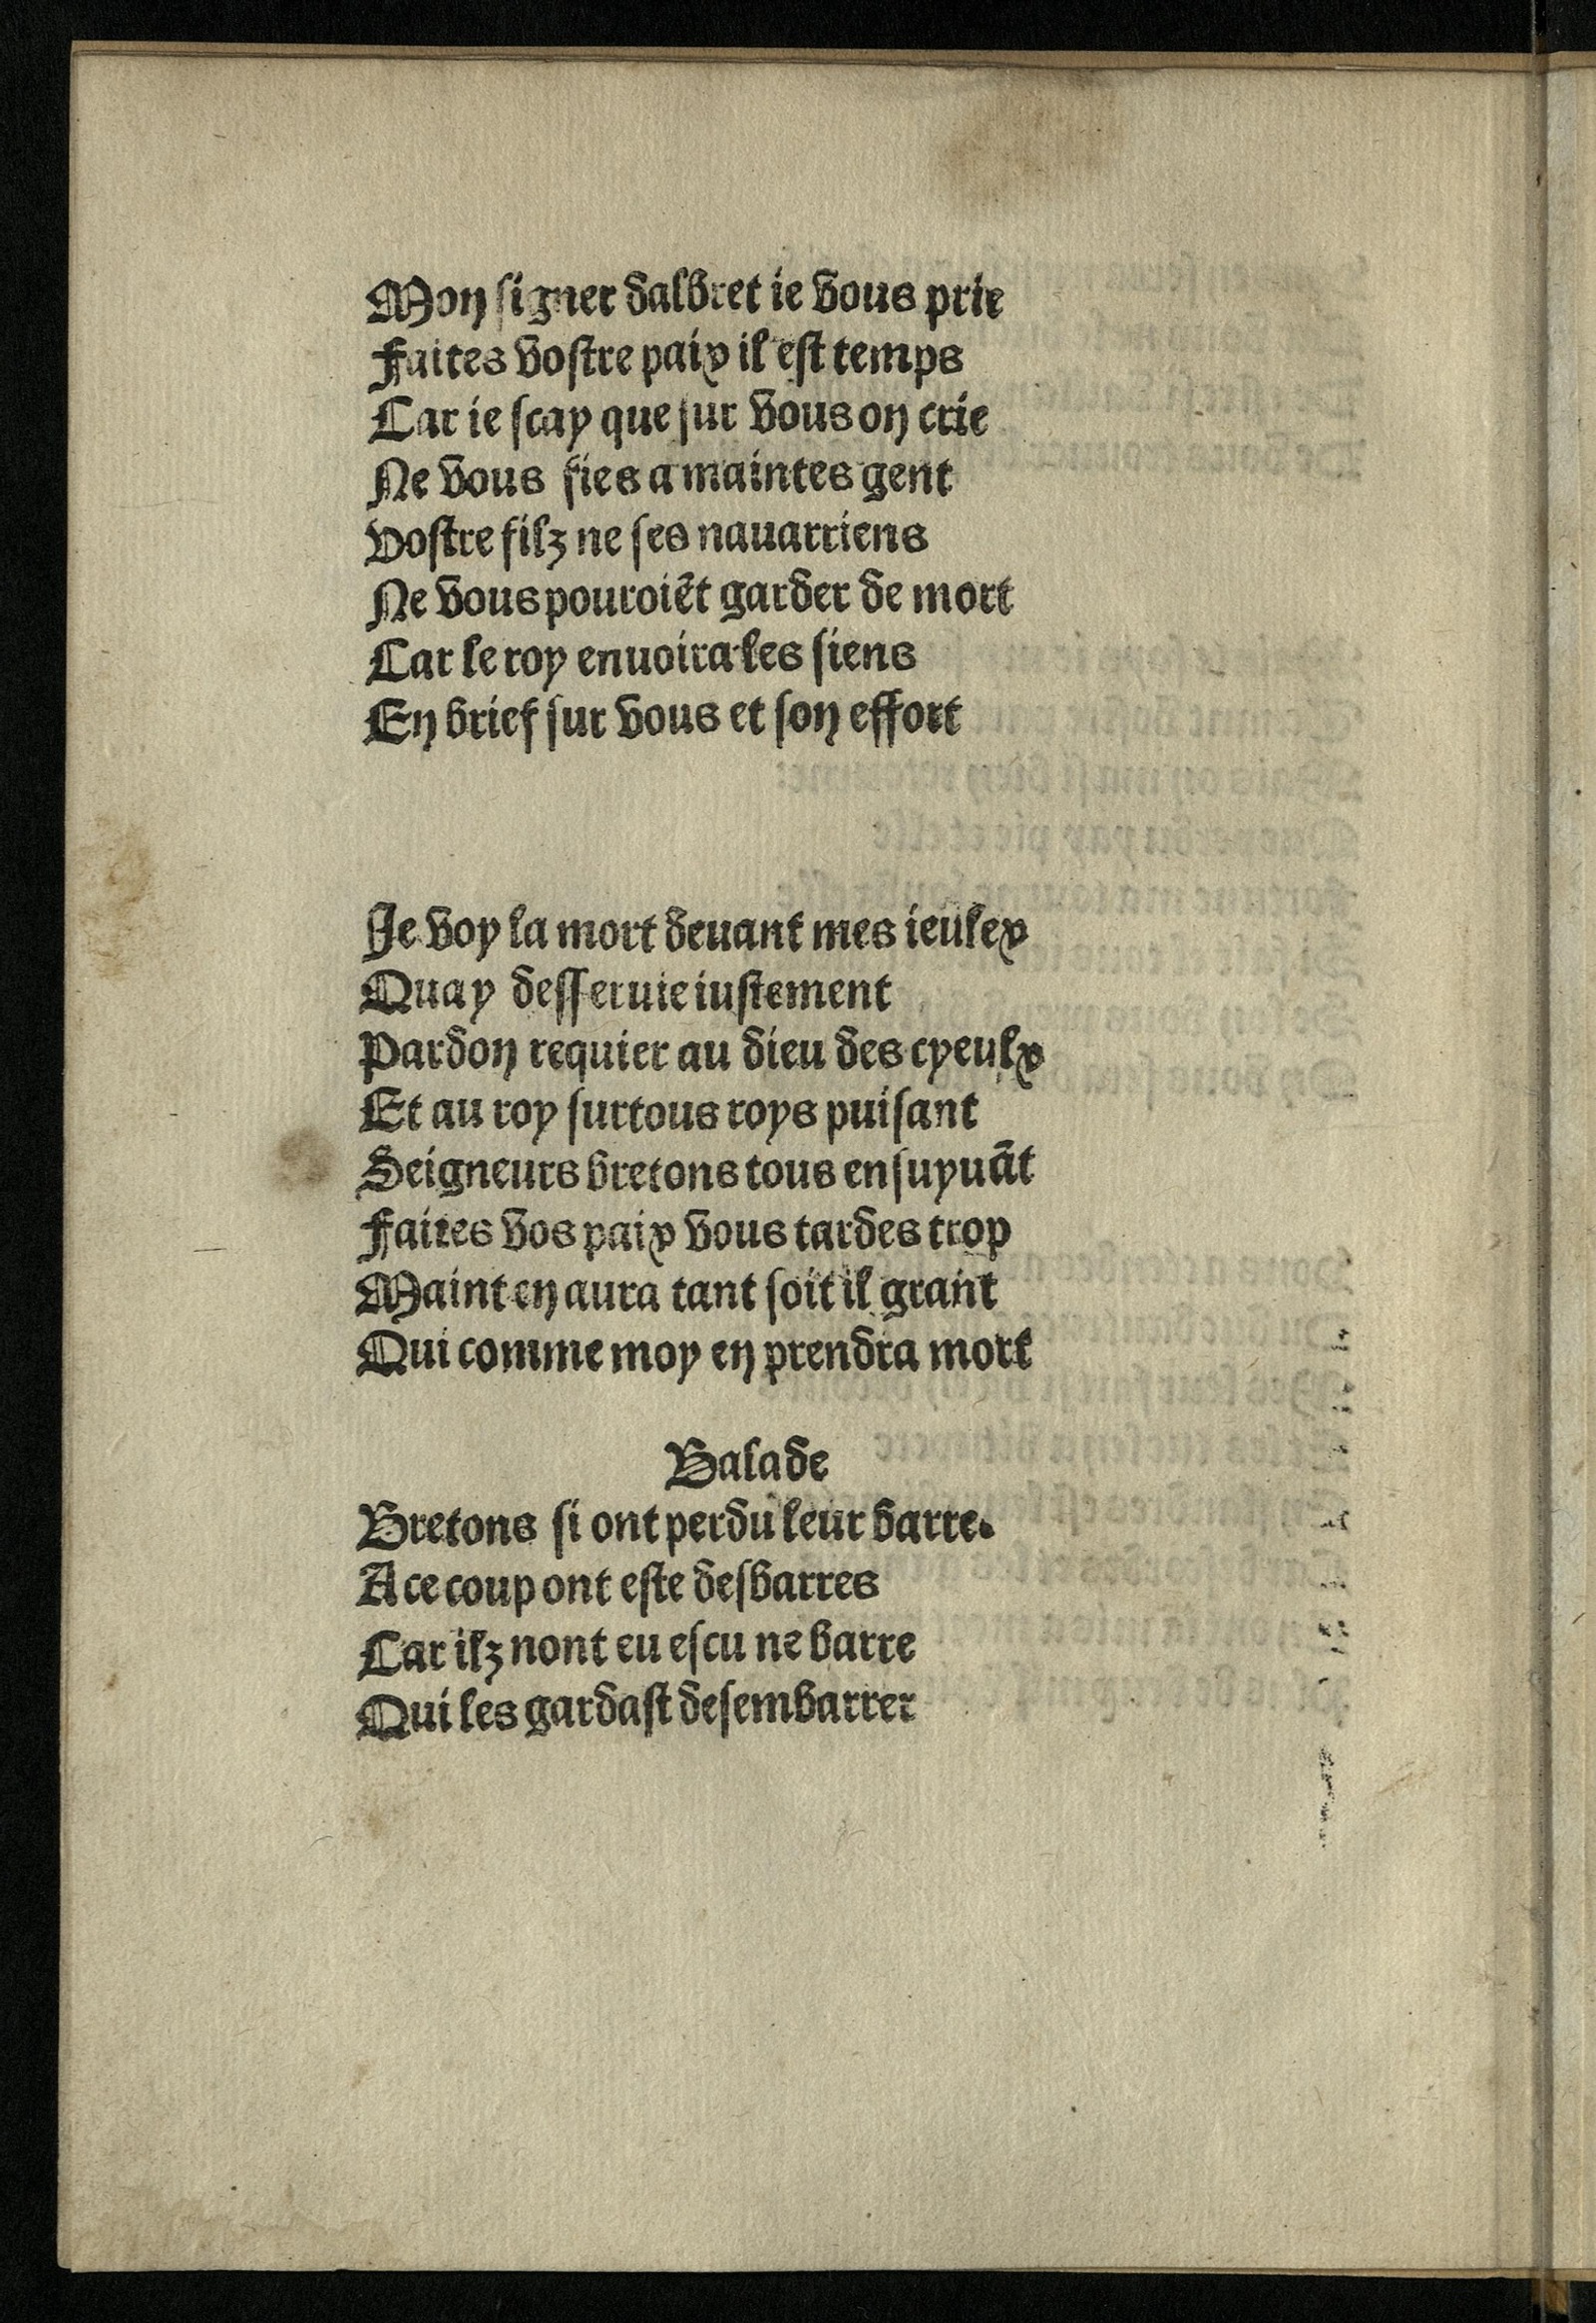 Mon signer dalbret ie vous prie
Faites vostre paix il est temps
Car ie scay que sur vous on crie
Ne vous fies a maintes gent
Vostre filz ne ses nauarriens
Ne vous pouroiēt garder de mort
Car le roy enuoira les siens
En brief sur vous et son effort
Je voy la mort deuant mes ieulex
Quay desseruie iustement
Pardon requier au dieu des cyeulx
Et au roy sur tous roys puisant
Seigneurs bretons tous ensuyuāt
Faites vos paix vous tardes trop
Maint en aura tant soit il grant
Qui comme moy en prendra mort
Balade
Bretons si ont perdu leur barre.
A ce coup ont este desbarres
Car ilz nont eu escu ne barre
Qui les gardast desembarrer